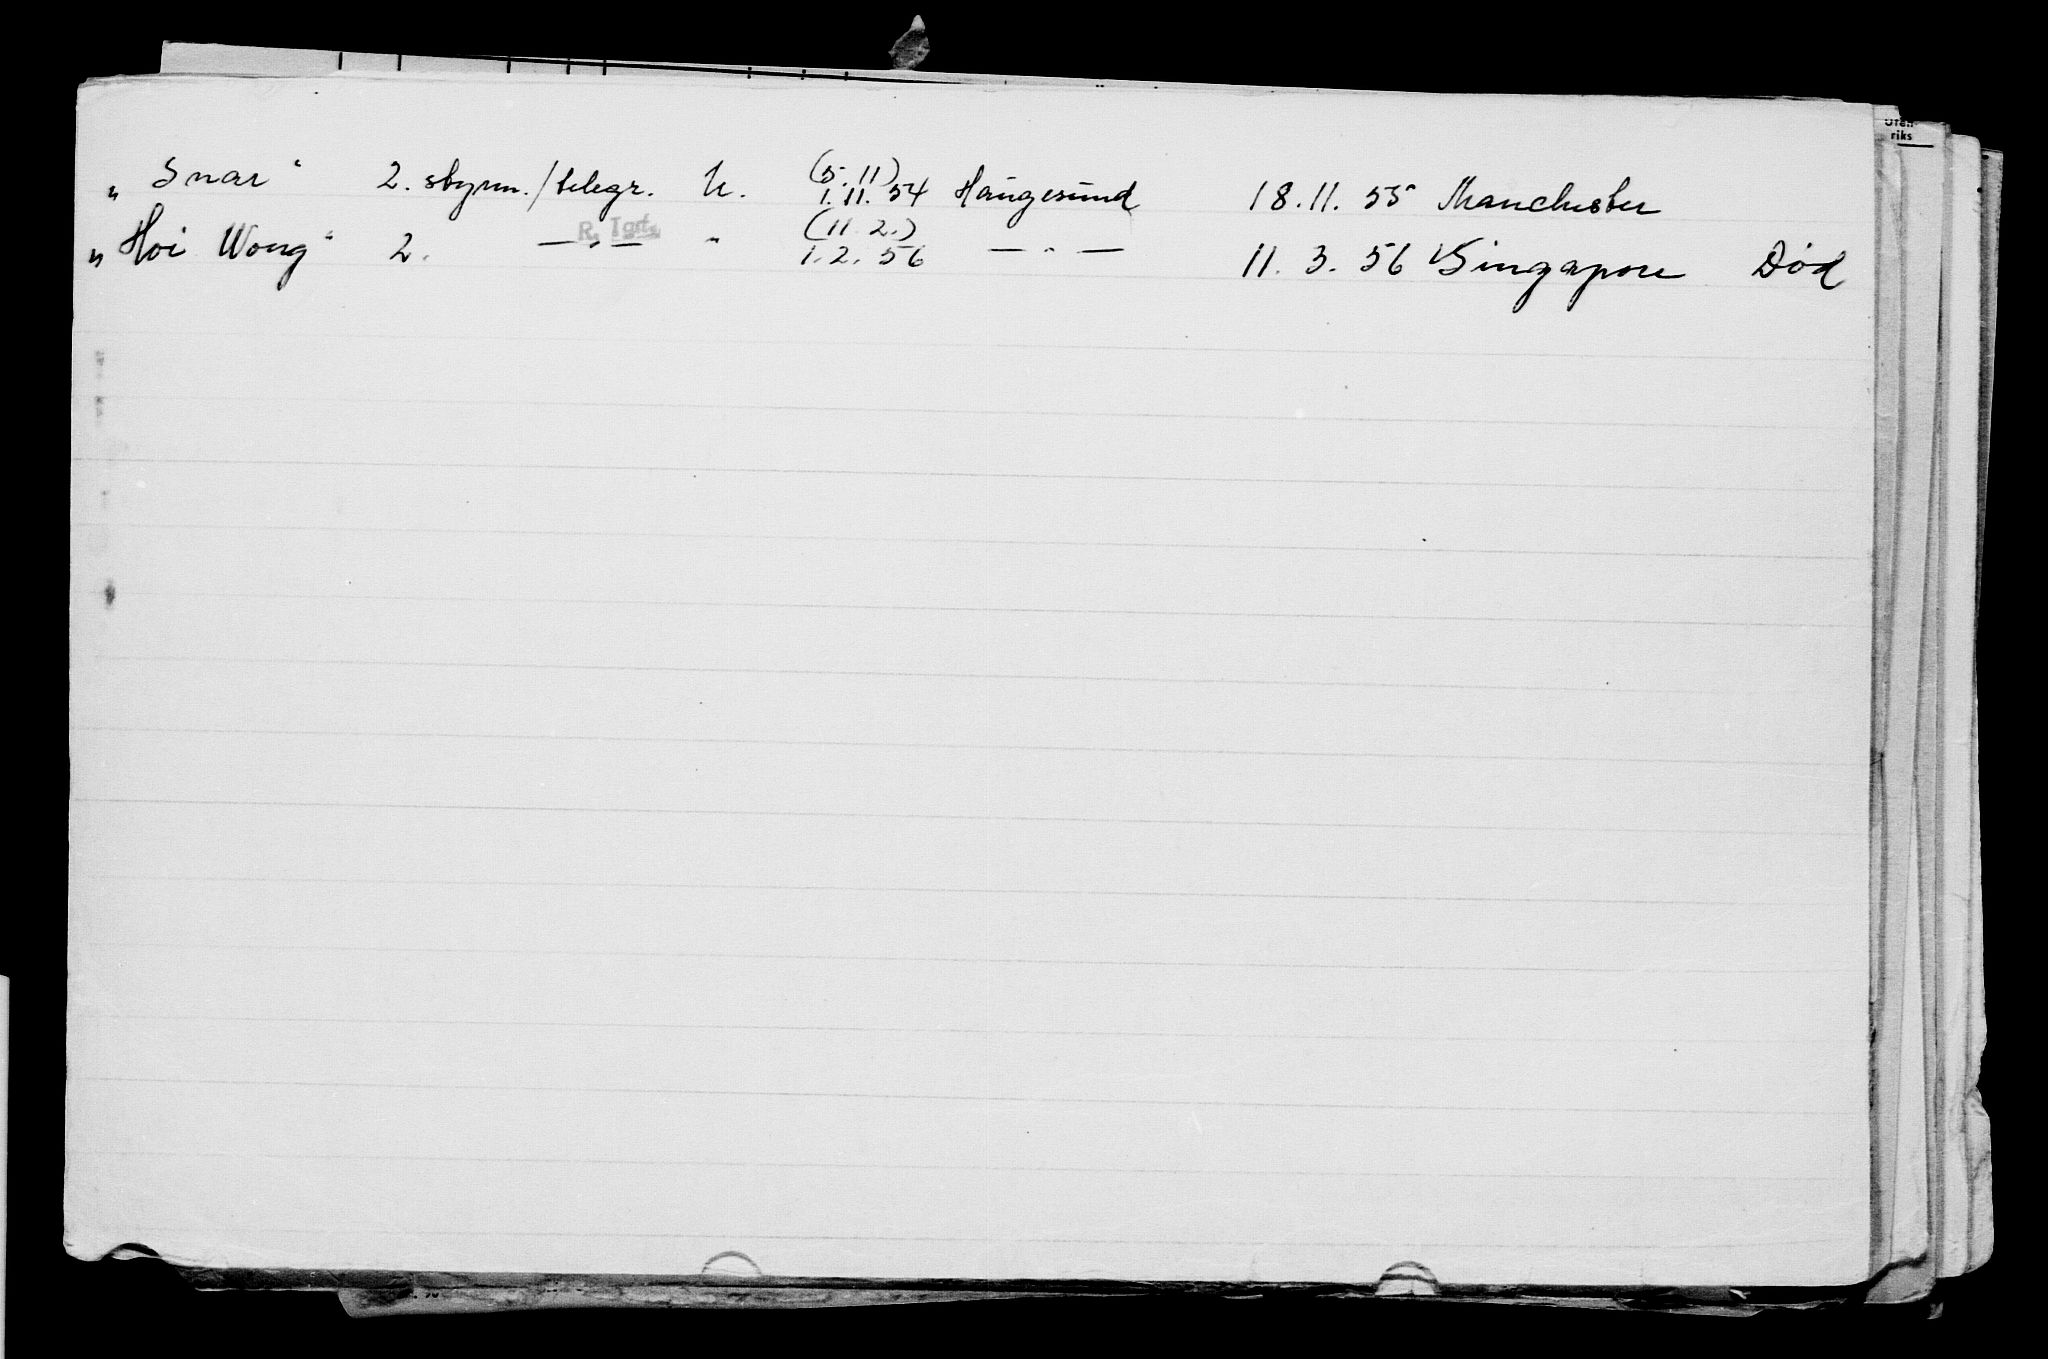 Uten-
riks
„Snar“ 2. styrm./telegr. U. (5.11) 1.11.54 Haugesund 18.11.55 Manchester
R. Tgrf.
„Hoi Wong“ 2. —„— " (11.2.) 1.2.56 —"— 11.3.56 Singapore Død